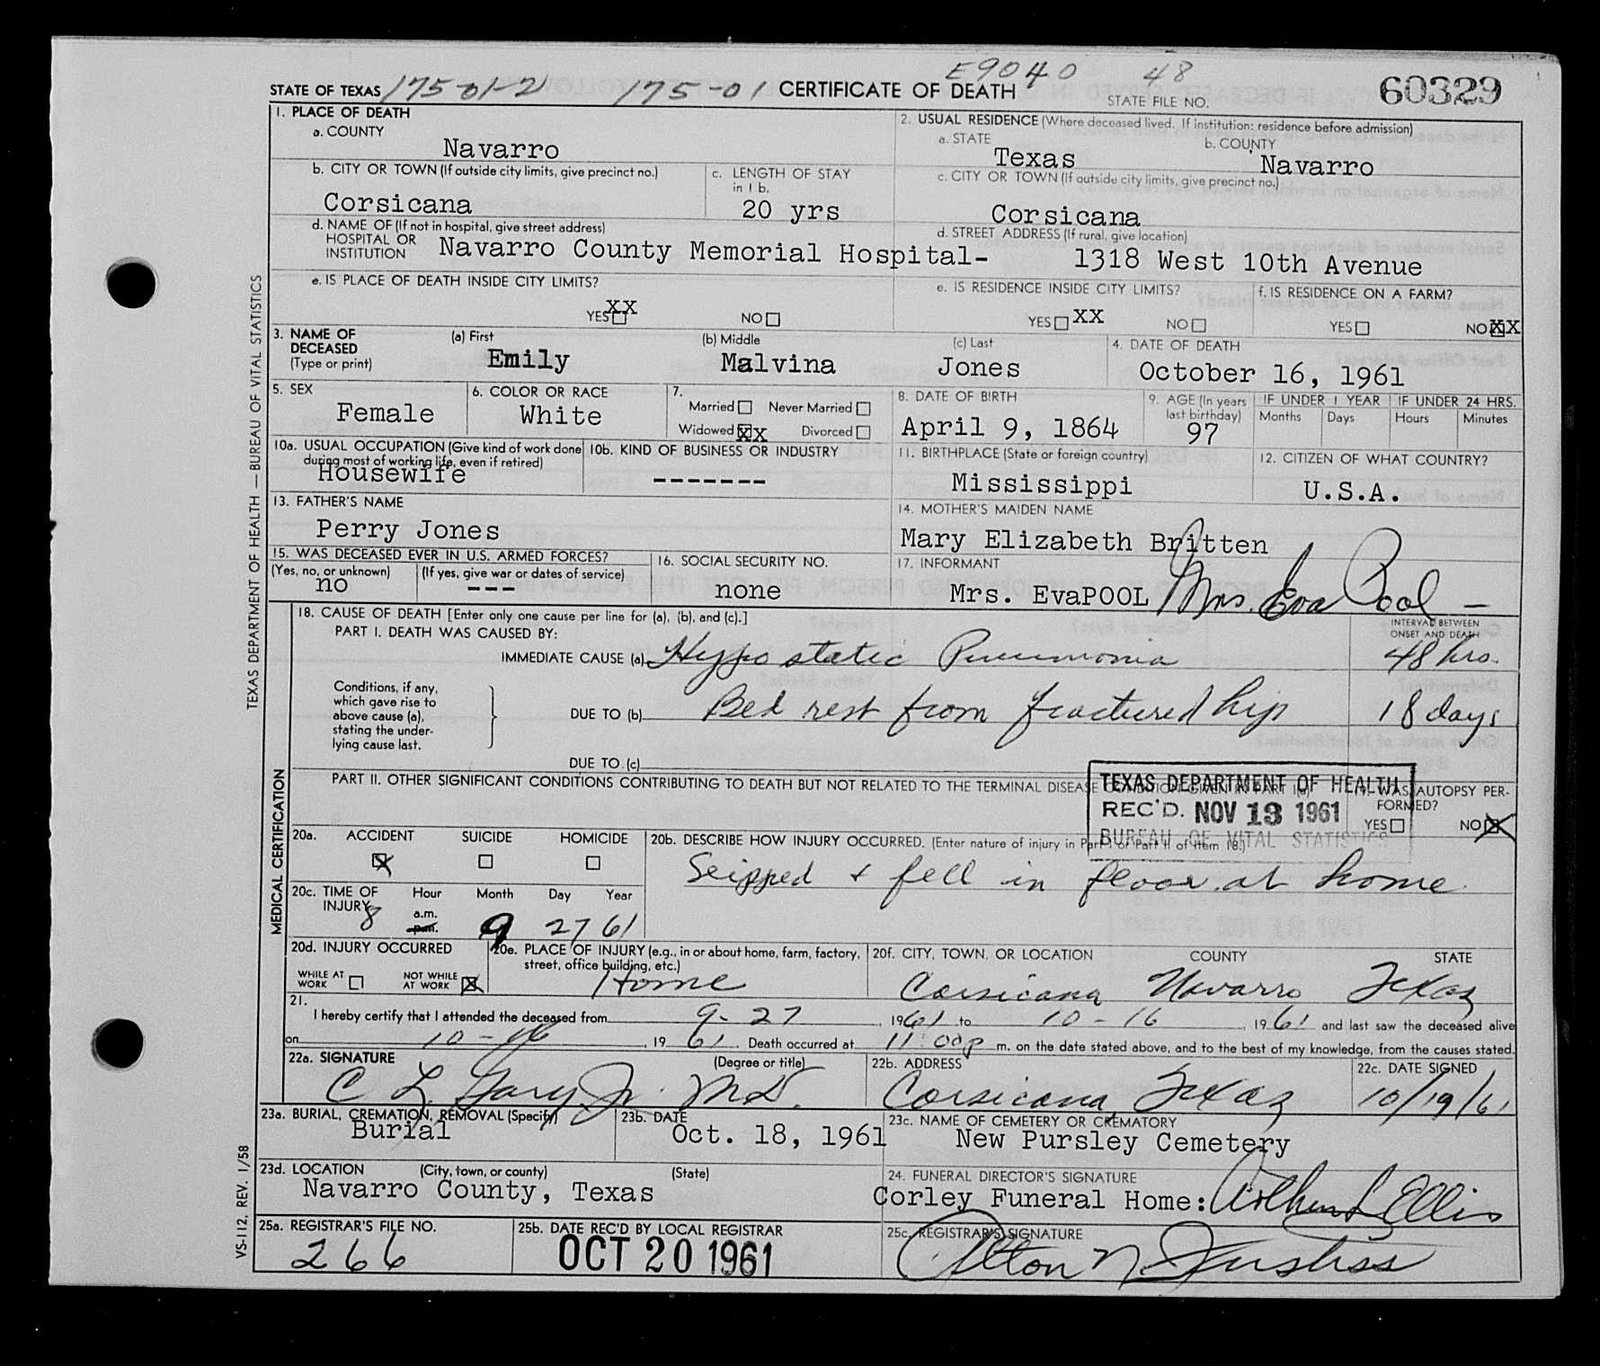 E9040 48
STATE OF TEXAS 175-01-2 175-01 CERTIFICATE OF DEATH STATE FILE NO. 60329
1. PLACE OF DEATH
a. COUNTY
Navarro
2. USUAL RESIDENCE (Where deceased lived. If institution: residence before admission)
a. STATE
Texas
b. COUNTY
Navarro
b. CITY OR TOWN (If outside city limits, give precinct no.)
Corsicana
c. LENGTH OF STAY
in 1 b.
20 yrs
c. CITY OR TOWN (If outside city limits, give precinct no.)
Corsicana
d. NAME OF (If not in hospital, give street address)
HOSPITAL OR
INSTITUTION
Navarro County Memorial Hospital-
d. STREET ADDRESS (If rural, give location)
1318 West 10th Avenue
e. IS PLACE OF DEATH INSIDE CITY LIMITS?
YES XX NO
e. IS RESIDENCE INSIDE CITY LIMITS?
YES XX NO
f. IS RESIDENCE ON A FARM?
YES NO XX
3. NAME OF
DECEASED
(Type or print)
(a) First
Emily
(b) Middle
Malvina
(c) Last
Jones
4. DATE OF DEATH
October 16, 1961
5. SEX
Female
6. COLOR OR RACE
White
7.
Married Never Married
Widowed XX Divorced
8. DATE OF BIRTH
April 9, 1864
9. AGE (In years
last birthday)
97
IF UNDER 1 YEAR
Months Days
IF UNDER 24 HRS.
Hours Minutes
10a. USUAL OCCUPATION (Give kind of work done
during most of working life, even if retired)
Housewife
10b. KIND OF BUSINESS OR INDUSTRY
-------
11. BIRTHPLACE (State or foreign country)
Mississippi
12. CITIZEN OF WHAT COUNTRY?
U.S.A.
13. FATHER'S NAME
Perry Jones
14. MOTHER'S MAIDEN NAME
Mary Elizabeth Britten
15. WAS DECEASED EVER IN U.S. ARMED FORCES?
(Yes, no, or unknown) (If yes, give war or dates of service)
no ---
16. SOCIAL SECURITY NO.
none
17. INFORMANT
Mrs. EvaPOOL Mrs. Eva Pool -
18. CAUSE OF DEATH [Enter only one cause per line for (a), (b), and (c).]
PART I. DEATH WAS CAUSED BY:
INTERVAL BETWEEN
ONSET AND DEATH
IMMEDIATE CAUSE (a) Hypostatic Pneumonia 48 hrs.
Conditions, if any,
which gave rise to
above cause (a),
stating the under-
lying cause last.
DUE TO (b) Bed rest from fractured hip 18 days
DUE TO (c)
PART II. OTHER SIGNIFICANT CONDITIONS CONTRIBUTING TO DEATH BUT NOT RELATED TO THE TERMINAL DISEASE CONDITION GIVEN IN PART I(a)
19. WAS AUTOPSY PER-
FORMED?
YES NO X
TEXAS DEPARTMENT OF HEALTH
REC'D. NOV 13 1961
BUREAU OF VITAL STATISTICS
20a. ACCIDENT SUICIDE HOMICIDE
X
20b. DESCRIBE HOW INJURY OCCURRED. (Enter nature of injury in Part I or Part II of item 18.)
Slipped & fell in floor at home
20c. TIME OF
INJURY
Hour Month Day Year
8 a.m. p.m. 9 27 61
20d. INJURY OCCURRED
WHILE AT
WORK
NOT WHILE
AT WORK X
20e. PLACE OF INJURY (e.g., in or about home, farm, factory,
street, office building, etc.)
Home
20f. CITY, TOWN, OR LOCATION COUNTY STATE
Corsicana Navarro Texas
21.
I hereby certify that I attended the deceased from 9-27, 1961 to 10-16, 1961 and last saw the deceased alive
on 10-16, 1961. Death occurred at 11:00p m. on the date stated above, and to the best of my knowledge, from the causes stated.
22a. SIGNATURE (Degree or title)
C L Gary Jr. M.D.
22b. ADDRESS
Corsicana, Texas
22c. DATE SIGNED
10/19/61
23a. BURIAL, CREMATION, REMOVAL (Specify)
Burial
23b. DATE
Oct. 18, 1961
23c. NAME OF CEMETERY OR CREMATORY
New Pursley Cemetery
23d. LOCATION (City, town, or county) (State)
Navarro County, Texas
24. FUNERAL DIRECTOR'S SIGNATURE
Corley Funeral Home: L Ellis
25a. REGISTRAR'S FILE NO.
266
25b. DATE REC'D BY LOCAL REGISTRAR
OCT 20 1961
25c. REGISTRAR'S SIGNATURE
Alton N. Justiss
TEXAS DEPARTMENT OF HEALTH — BUREAU OF VITAL STATISTICS
MEDICAL CERTIFICATION
VS-112, REV. 1/58